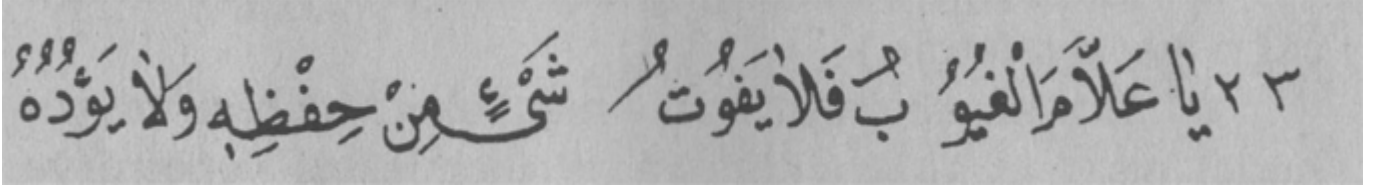 ٢٣ يَا عَلَّامَ الْغُيُوبُ فَلَا يَفُوتُ شَیْءٍ مِنْ حِفْظِهِ وَلَا يَؤُدُهُ